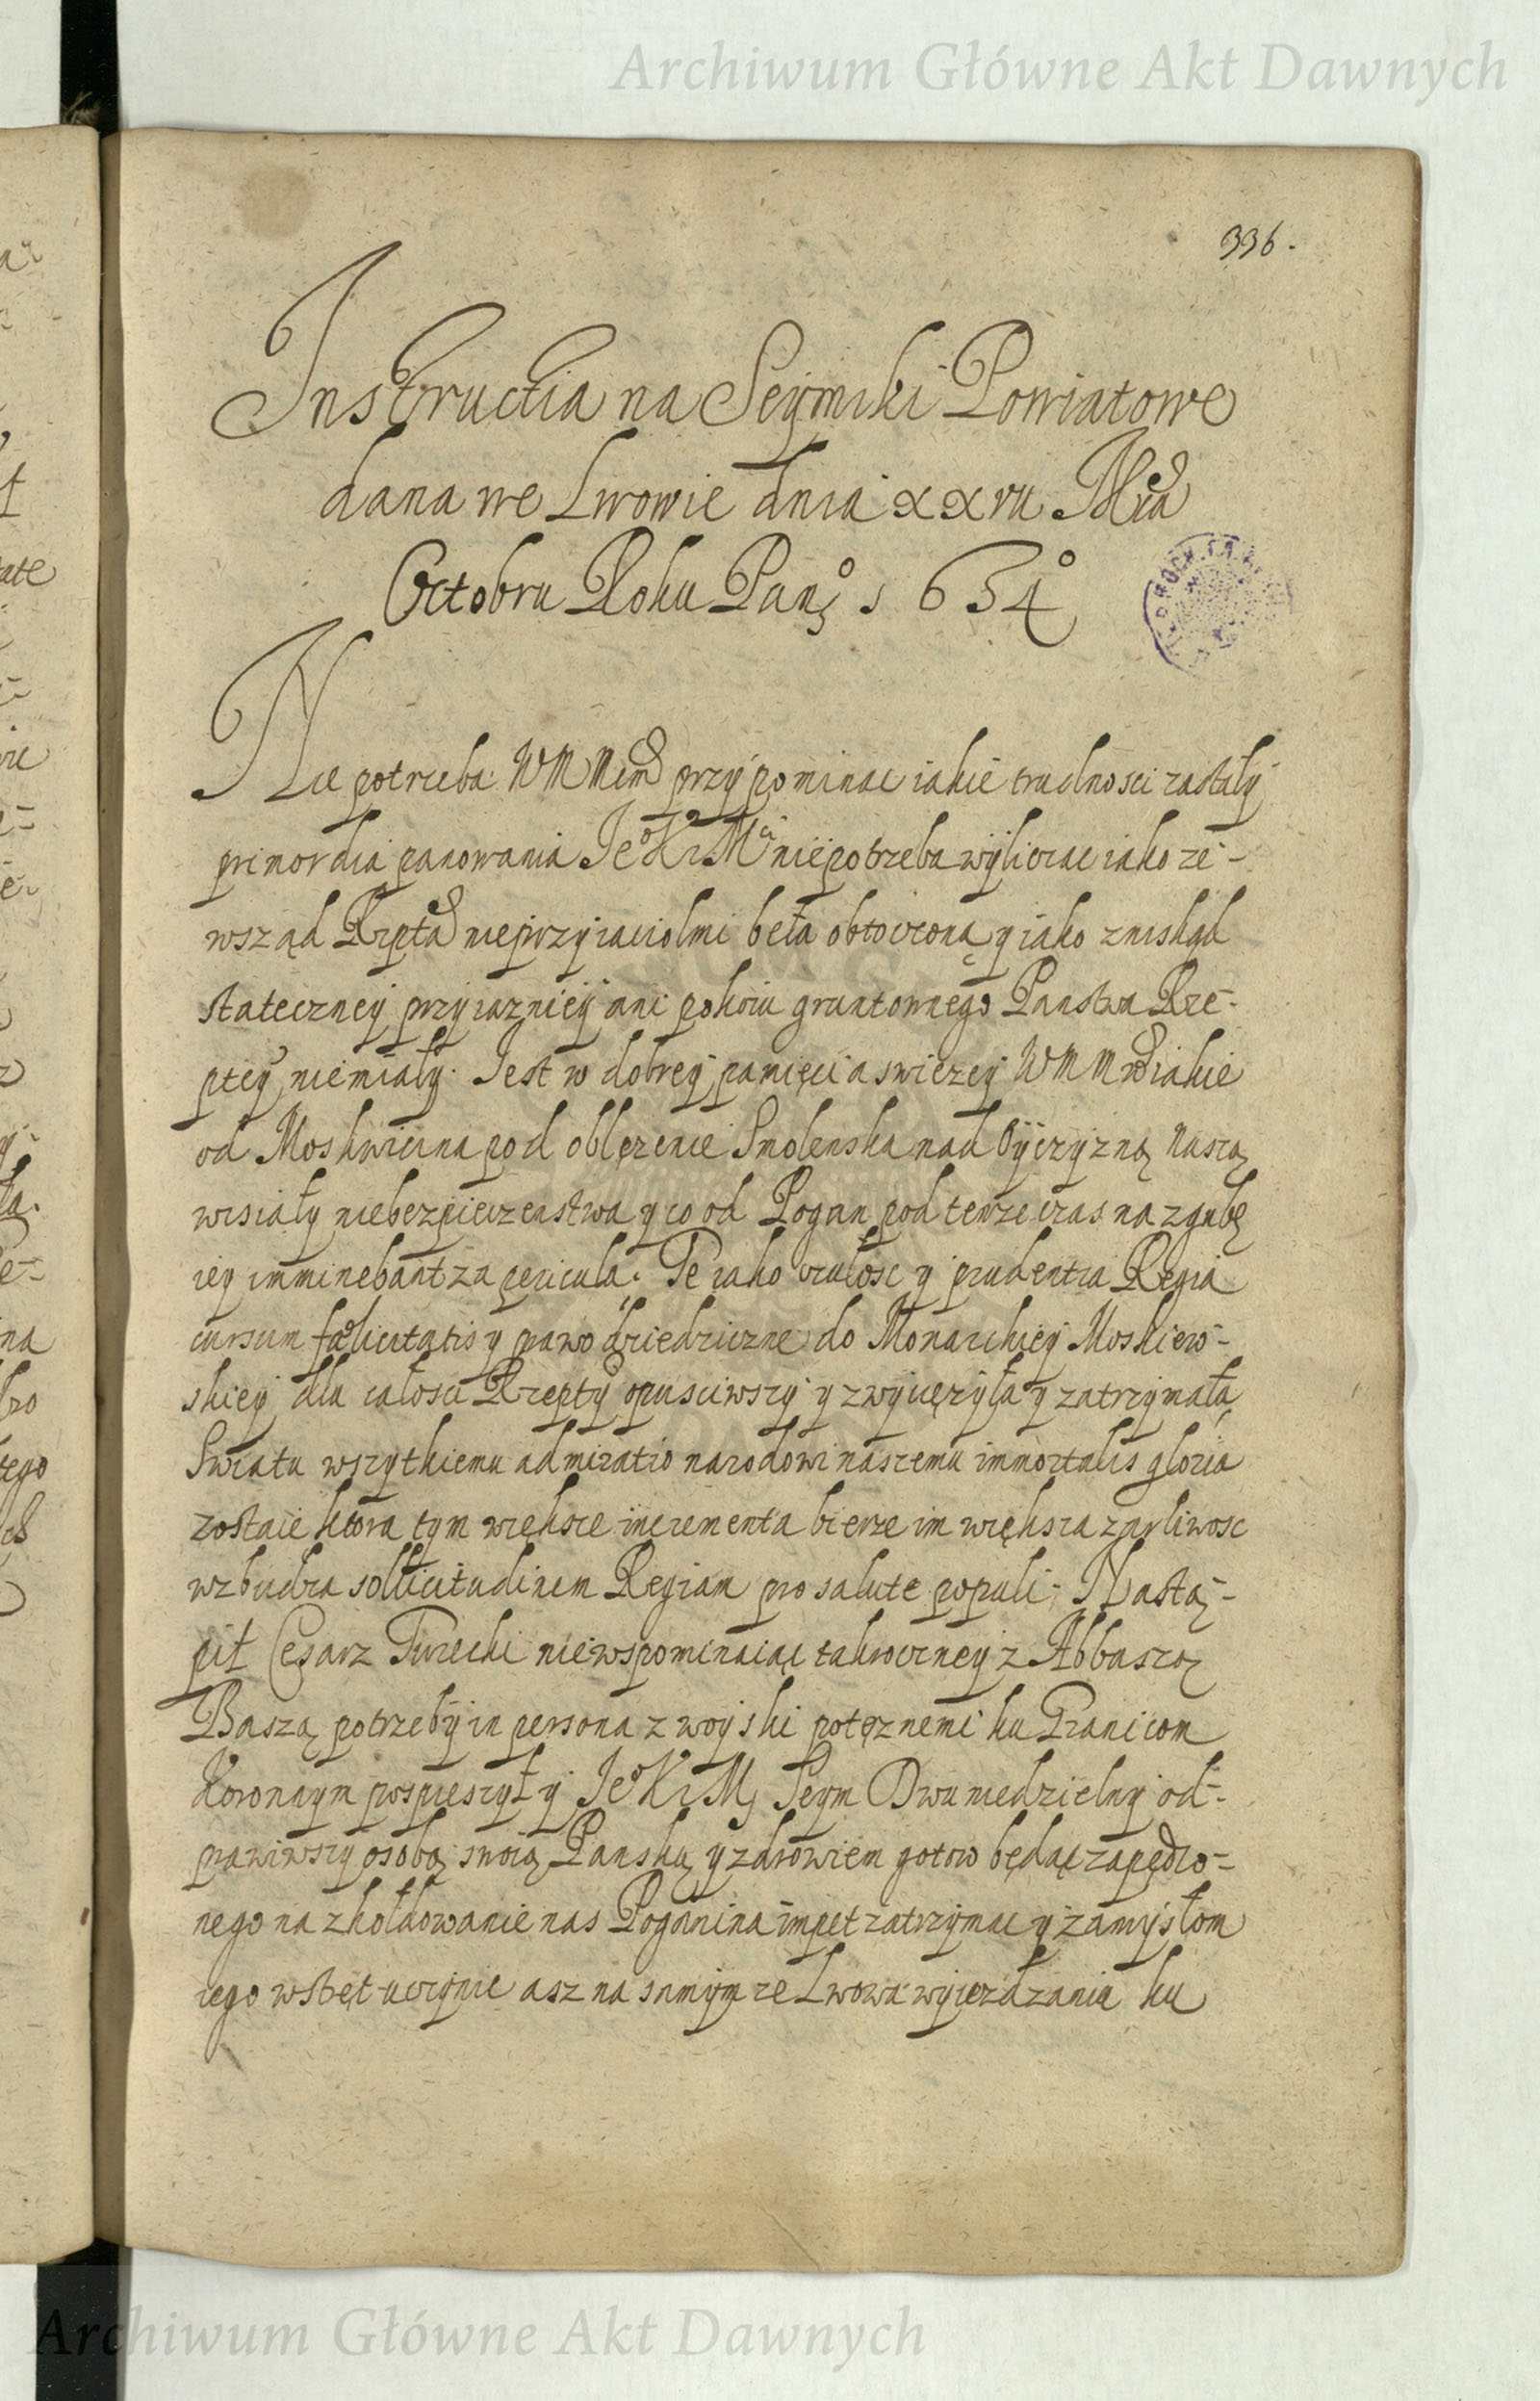 Archiwum Główne Akt Dawnych
336.
Instructia na Seymiki Powiatowe
dana we Lwowie dnia xxvii Msca
Octobru Roku Pans° 1634°
Nie potrzeba WMMciom przypominac iakie trudnosci zastały
primordia panowania Je° K. M.ci nie potrzeba wyliczac iako ze-
wsząd Rzpta nieprzyiaciolmi beła obtoczoną y iako zniskąd
stateczney przyiazniey ani pokoiu gruntownego Panstwa Rze-
ptey niemiały. Jest w dobrey pamięci a swiezey WMMciow iakie
od Moskwicina pod oblęzenie Smolenska nad Oyczyzną naszą
wisiały niebezpieczenstwa y co od Pogan pod tenze czas na zgubę
iey imminebant za pericula. Te iako czułosc y prudentia Regia
cursum fælicitatis y prawo dziedziczne do Monarchiey Moskiew-
skiey dla całosci Rzeptey opusciwszy y zwycięzyła y zatrzymała
Swiatu wszytkiemu admiratio narodowi naszemu immortalis gloria
zostaie ktora tym większe incrementa bierze im większa zarliwosc
wzbudza sollicitudinem Regiam pro salute populi. Nastą-
pił Cesarz Turecki niewspominaiąc takroczney z Abbaszą
Baszą potrzeby in persona z woyski potęznemi ku Granicom
Koronnym pospieszył y Je° K. M. Seym Dwuniedzielny od-
prawiwszy osobą swoią Panską y zdrowiem gotow będąc zapędzo-
nego na zhołdowanie nas Poganina impet zatrzymac y zamysłom
iego wstęt uczynic asz na samym ze Lwowa wyiezdzaniu ku
Archiwum Główne Akt Dawnych